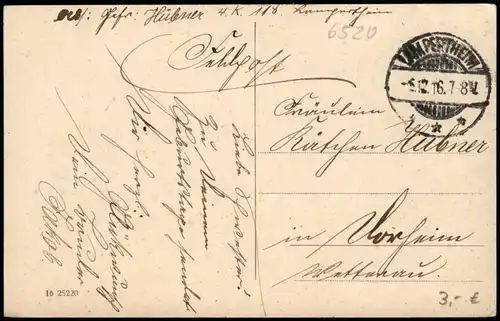 Abs: Gefr: Hübner 4. K. 118. Lampertheim
6520
Feldpost
LAMPERTHEIM
-5.12.16.7-8V.
Liebe Schwester!
Zu Deinem
Geburtstage sendet
Dir herzl.
Glückwunsch
Dein Bruder
Fräulein
Kätchen Hübner
in Dorheim
Wetterau.
16 25220
3,- €